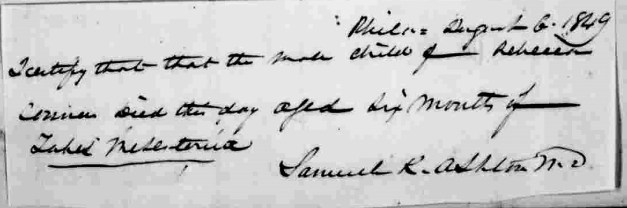 Phila= August 6. 1849
I certify that that the male child of Rebecca
died this day aged Six Months of
Tabes Mesenterica
Samuel K. Ashton M.D